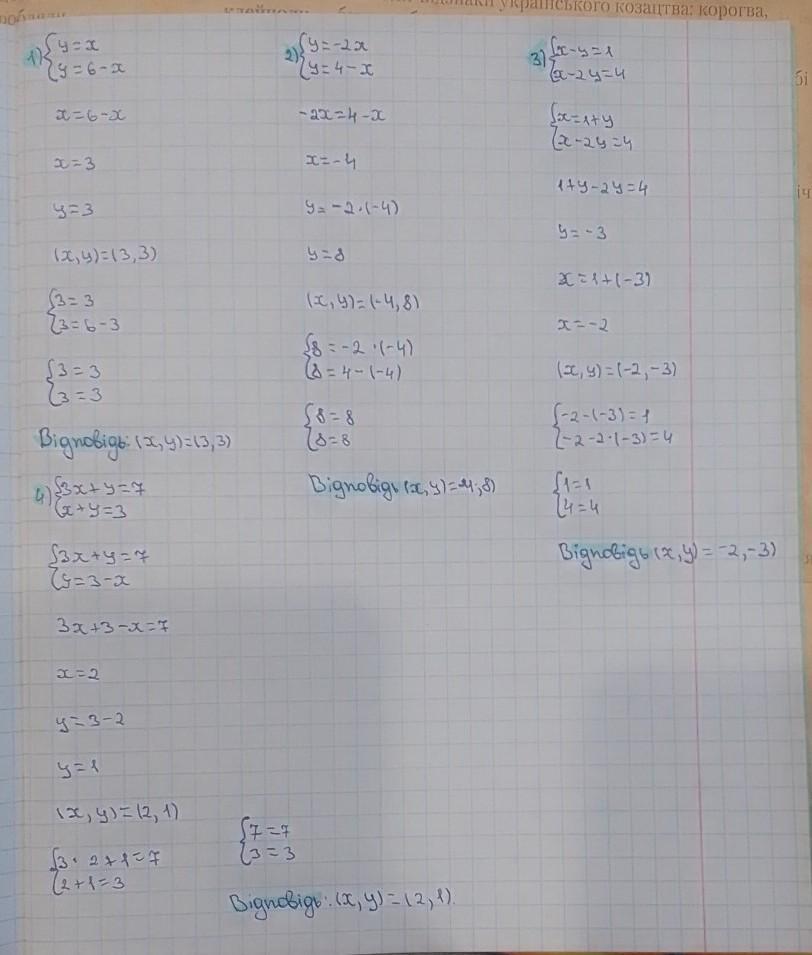 українського козацтва: корогва,
бі
іч
1) {y=x
{y=6-x
x=6-x
x=3
y=3
(x,y)=(3,3)
{3=3
{3=6-3
{3=3
{3=3
Відповідь: (x,y)=(3,3)
2) {y=-2x
{y=4-x
-2x=4-x
x=-4
y=-2·(-4)
y=8
(x,y)=(-4,8)
{8=-2·(-4)
{8=4-(-4)
{8=8
{8=8
Відповідь (x,y)=-4;8)
3) {x-y=1
{x-2y=4
{x=1+y
{x-2y=4
1+y-2y=4
y=-3
x=1+(-3)
x=-2
(x,y)=(-2,-3)
{-2-(-3)=1
{-2-2·(-3)=4
{1=1
{4=4
Відповідь (x,y)=-2,-3)
4) {3x+y=7
{x+y=3
{3x+y=7
{y=3-x
3x+3-x=7
x=2
y=3-2
y=1
(x,y)=(2,1)
{3·2+1=7
{2+1=3
{7=7
{3=3
Відповідь: (x,y)=(2,1).